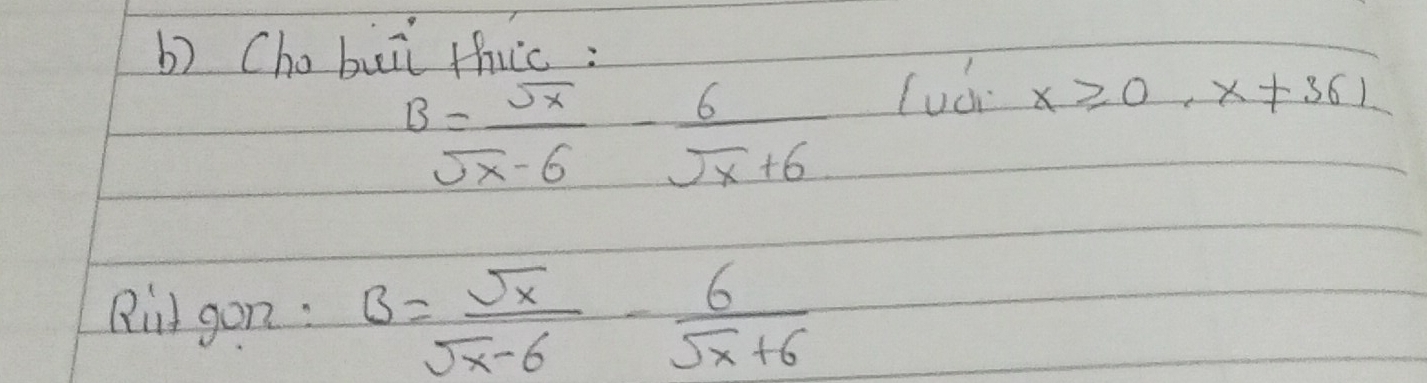 b) Cho biểu thức :
B = √x / (√x - 6) - 6 / (√x + 6) (với x ≥ 0, x ≠ 36)
Rút gọn : B = √x / (√x - 6) - 6 / (√x + 6)